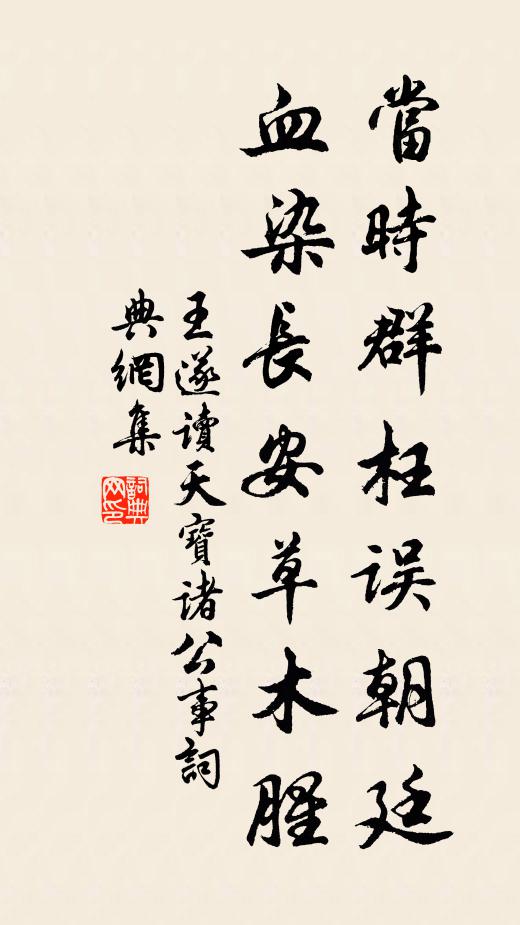 當時群枉误朝廷
血染長安草木腥
王遂讀天寶诸公事詞
典網集
詞典网印